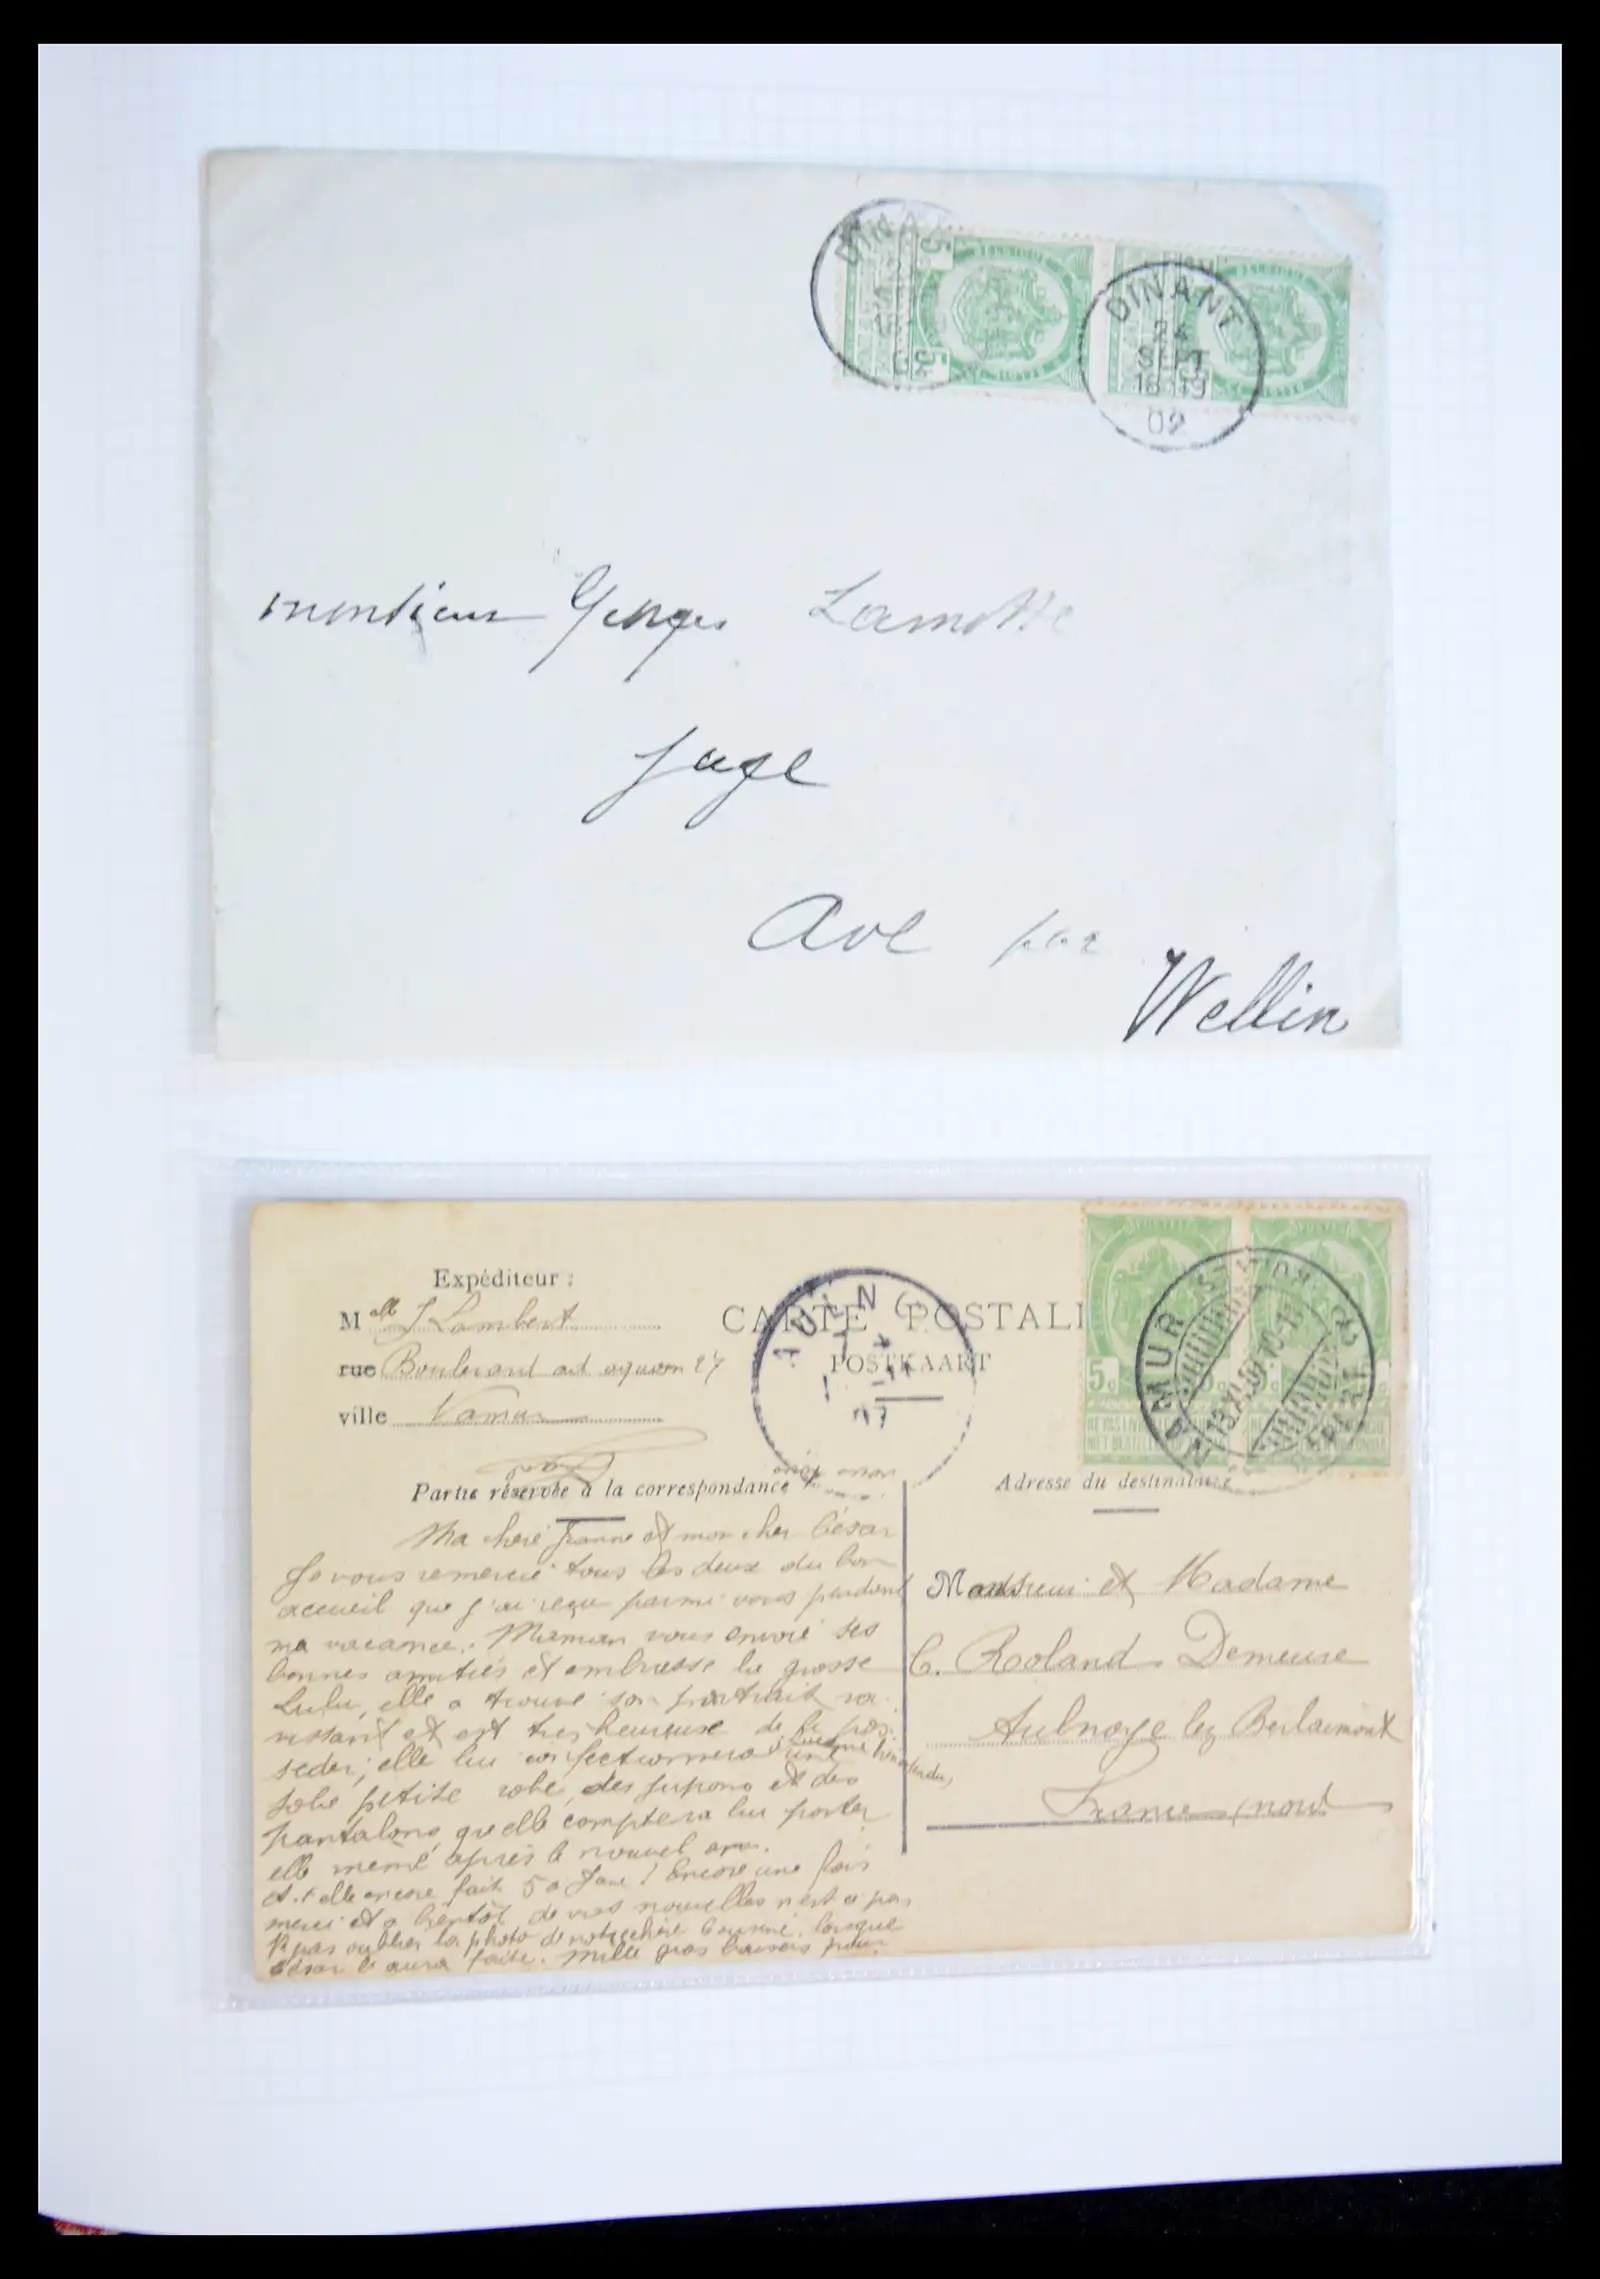 DINANT
24
SEPT
18-19
02
5c
BELGIQUE
monsieur Georges Lamotte
Juge
Ave par
Wellin
Expéditeur :
Melle J Lambert
rue Boulevard ad aquam 27
ville Namur
CARTE POSTALE
POSTKAART
NAMUR STATION
5c 5c
NE PAS LIVRER
Partie réservée à la correspondance
Adresse du destinataire
Ma chère Jeanne et mon cher César
Je vous remercie tous les deux du bon
accueil que j'ai reçu parmi vous pendant
ma vacance. Maman vous envoie ses
bonnes amitiés et embrasse la grosse
Lulu, elle a trouvé son portrait ra-
vissant et est très heureuse de le pos-
seder; elle lui confectionnera une
jolie petite robe, des jupons et des
pantalons, qu'elle comptera lui porter
elle même après le nouvel an.
A-t-elle encore fait Encore une fois
merci et à bientôt de vos nouvelles n'est ce pas
N pas oublier la photo de notre chère lorsque
César l'aura faite. Mille gros baisers pour
Monsieur et Madame
C. Roland Demeuse
Aulnoye lez Berlaimont
France (nord